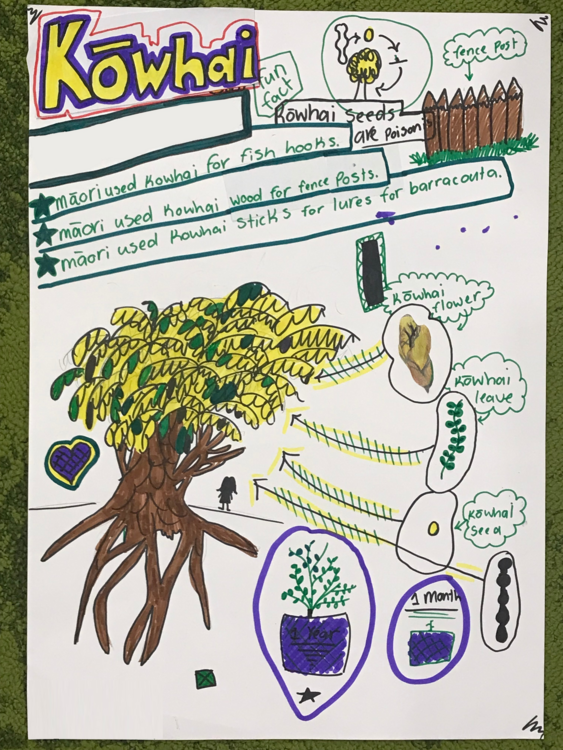 Kōwhai
fun
fact
fence post
Kōwhai seeds
are poison
māori used kowhai for fish hooks.
māori used Kowhai wood for fence posts.
māori used Kowhai sticks for lures for barracouta.
Kōwhai
flower
Kōwhai
leave
Kōwhai
seed
1 Year
1 Month